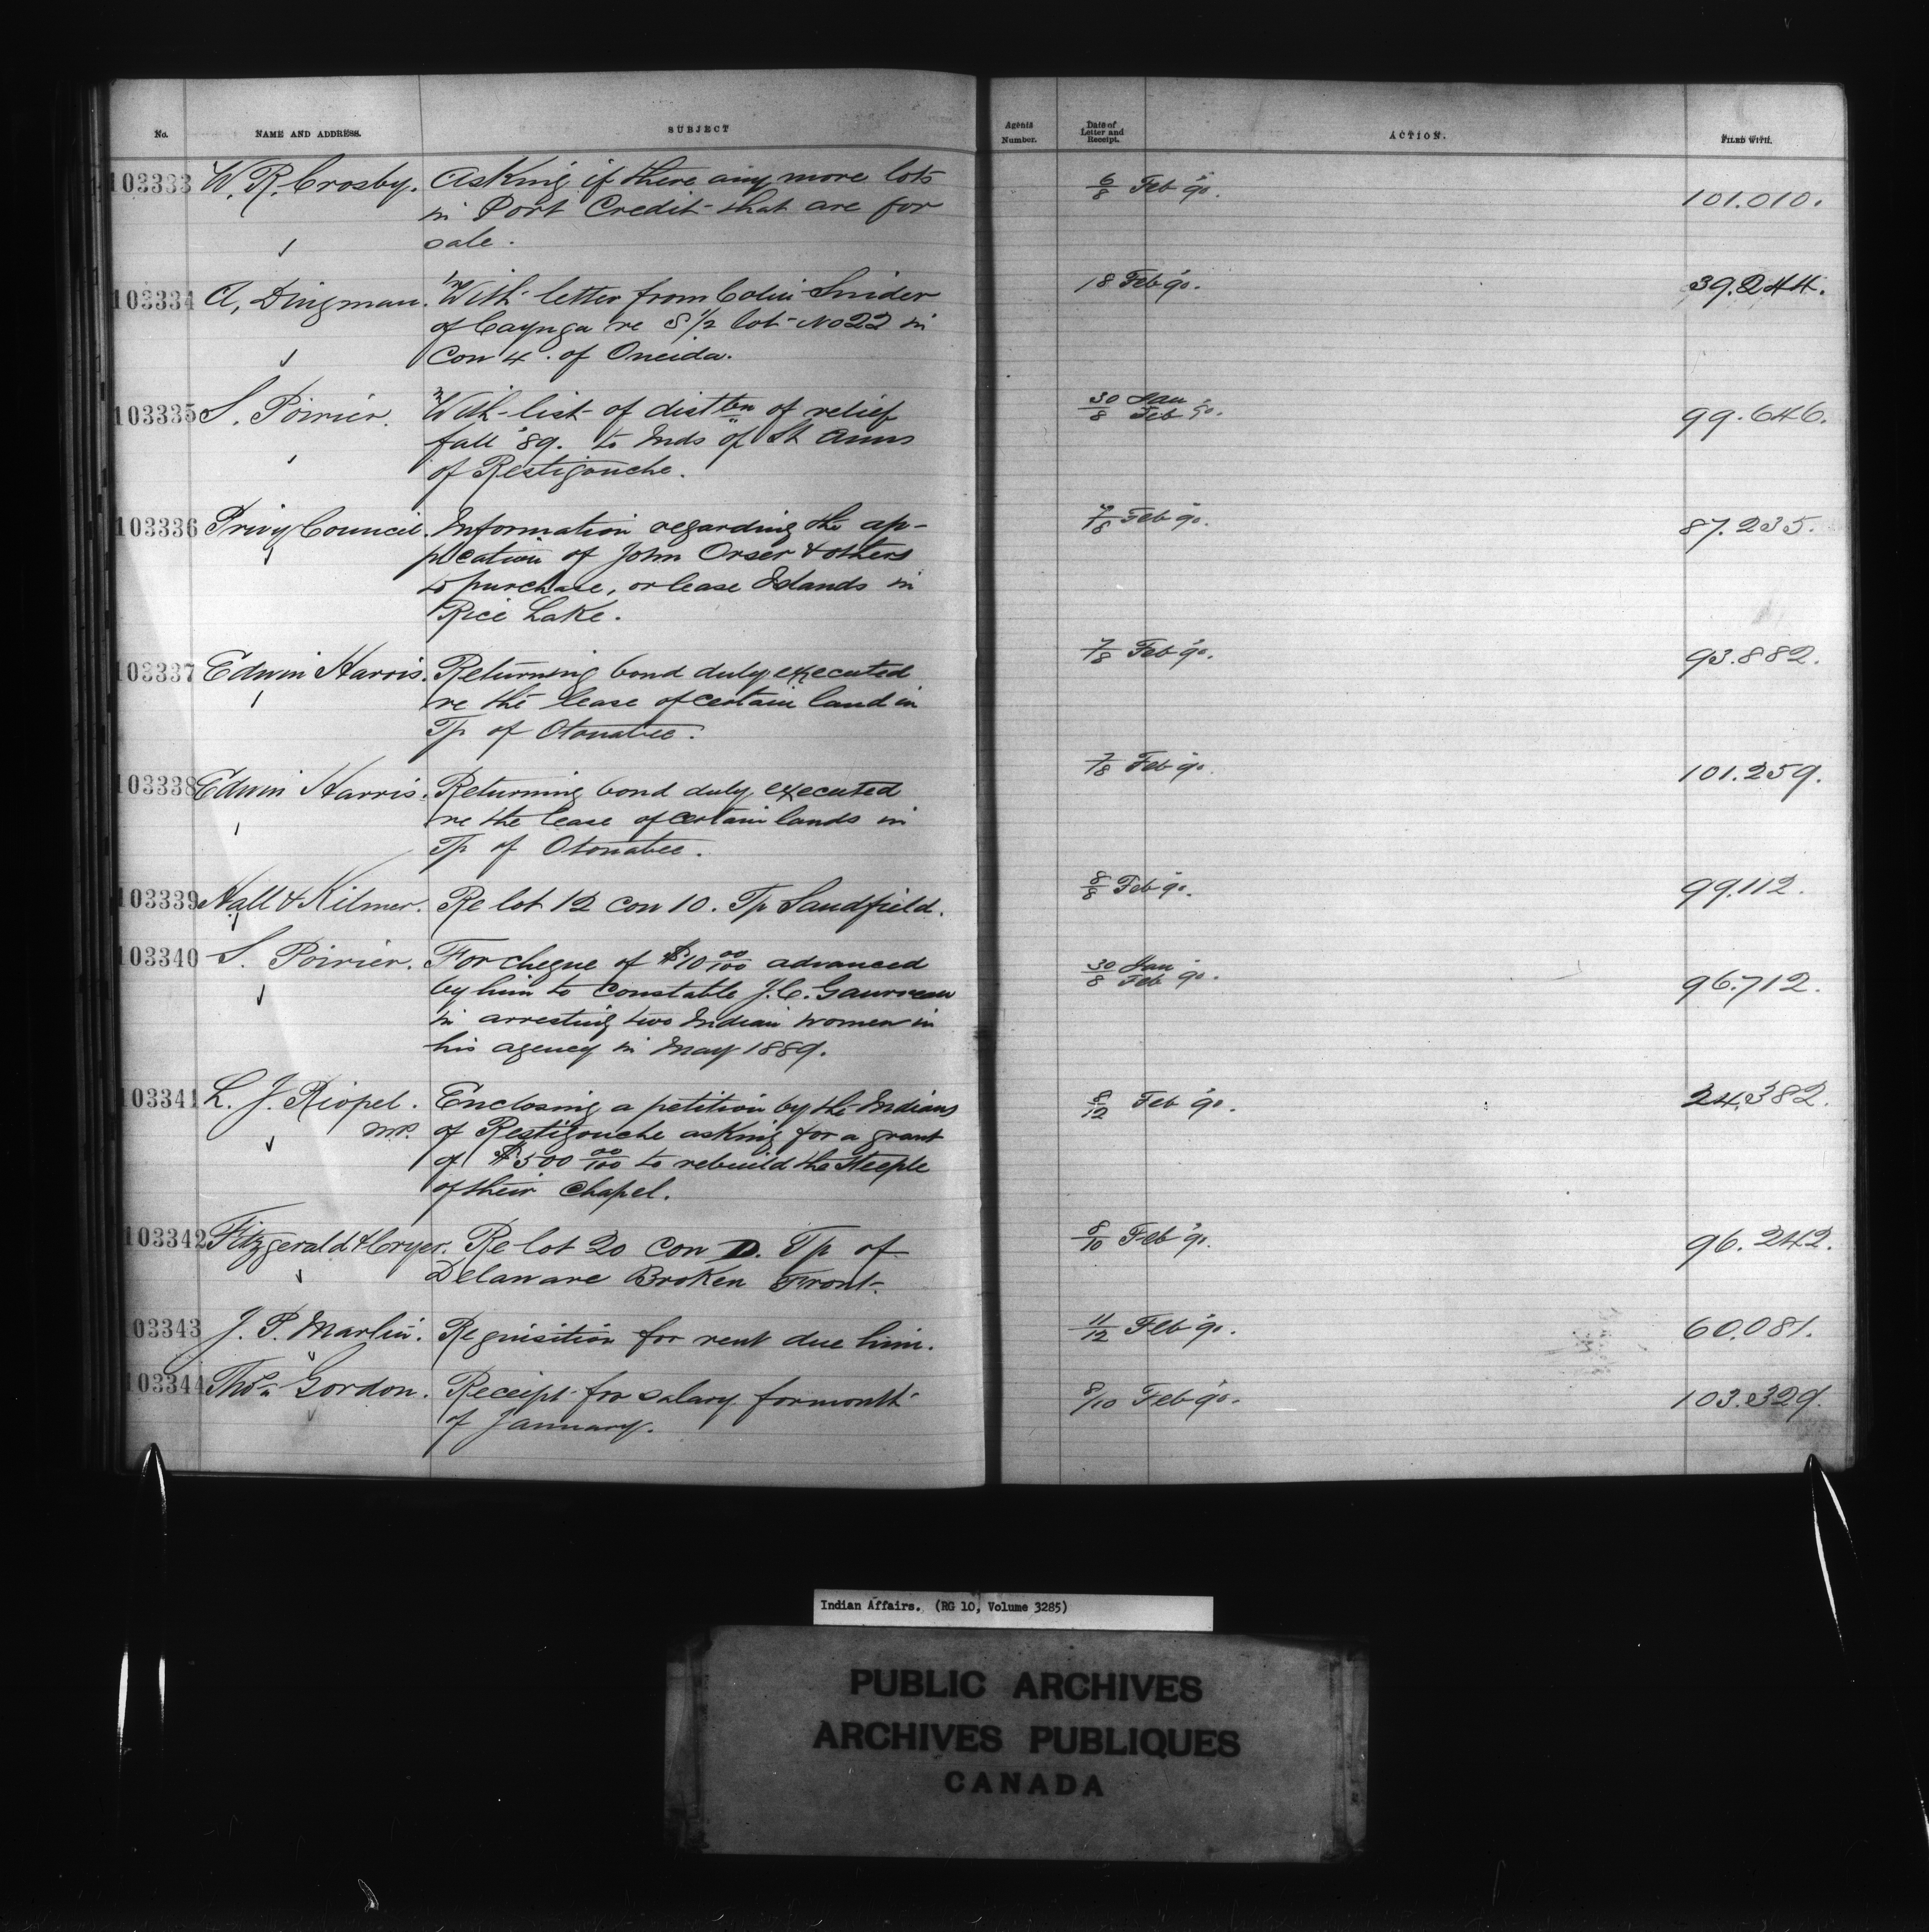 No. NAME AND ADDRESS. SUBJECT Agents Number. Date of Letter and Receipt. ACTION. FILED WITH.
103333 W. R. Crosby. Asking if there any more lots 6/8 Feb '90. 101.010.
in Port Credit that are for
sale.
103334 A, Dingman. With letter from Colin Snider 18 Feb 90. 39.244.
of Cayuga re S 1/2 lot No 22 in
Con 4. of Oneida.
103335 S. Poirier. With list of distbn of relief 30/8 Jan/Feb 90. 99.646.
fall '89. to Inds of St Anns
of Restigouche.
103336 Privy Council. Information regarding the ap- 7/8 Feb 90. 87.235.
plication of John Orser & others
to purchase, or lease Islands in
Rice Lake.
103337 Edwin Harris. Returning bond duly executed 7/8 Feb 90. 93.882.
re the lease of certain land in
Tp of Otonabee.
103338 Edwin Harris. Returning bond duly executed 7/8 Feb 90. 101.259.
re the lease of certain lands in
Tp of Otonabee.
103339 Hall & Kilmer. Re lot 12 con 10. Tp Sandfield. 8/8 Feb 90. 99.112.
103340 S. Poirier. For cheque of $10 00/100 advanced 30/8 Jan/Feb 90. 96.712.
by him to Constable J. C.
in arresting two Indian women in
his agency in May 1889.
103341 L. J. Riopel. Enclosing a petition by the Indians 8/12 Feb 90. 24.382.
MP. of Restigouche asking for a grant
of $500 00/100 to rebuild the Steeple
of their Chapel.
103342 Fitzgerald & Cryer. Re lot 20 con D. Tp of 8/10 Feb 90. 96.242.
Delaware Broken Front.
103343 J. P. Marlin. Requisition for rent due him. 11/12 Feb 90. 60.081.
103344 Thos. Gordon. Receipt for salary for month 8/10 Feb 90. 103.329.
of January.
Indian Affairs. (RG 10, Volume 3285)
PUBLIC ARCHIVES
ARCHIVES PUBLIQUES
CANADA